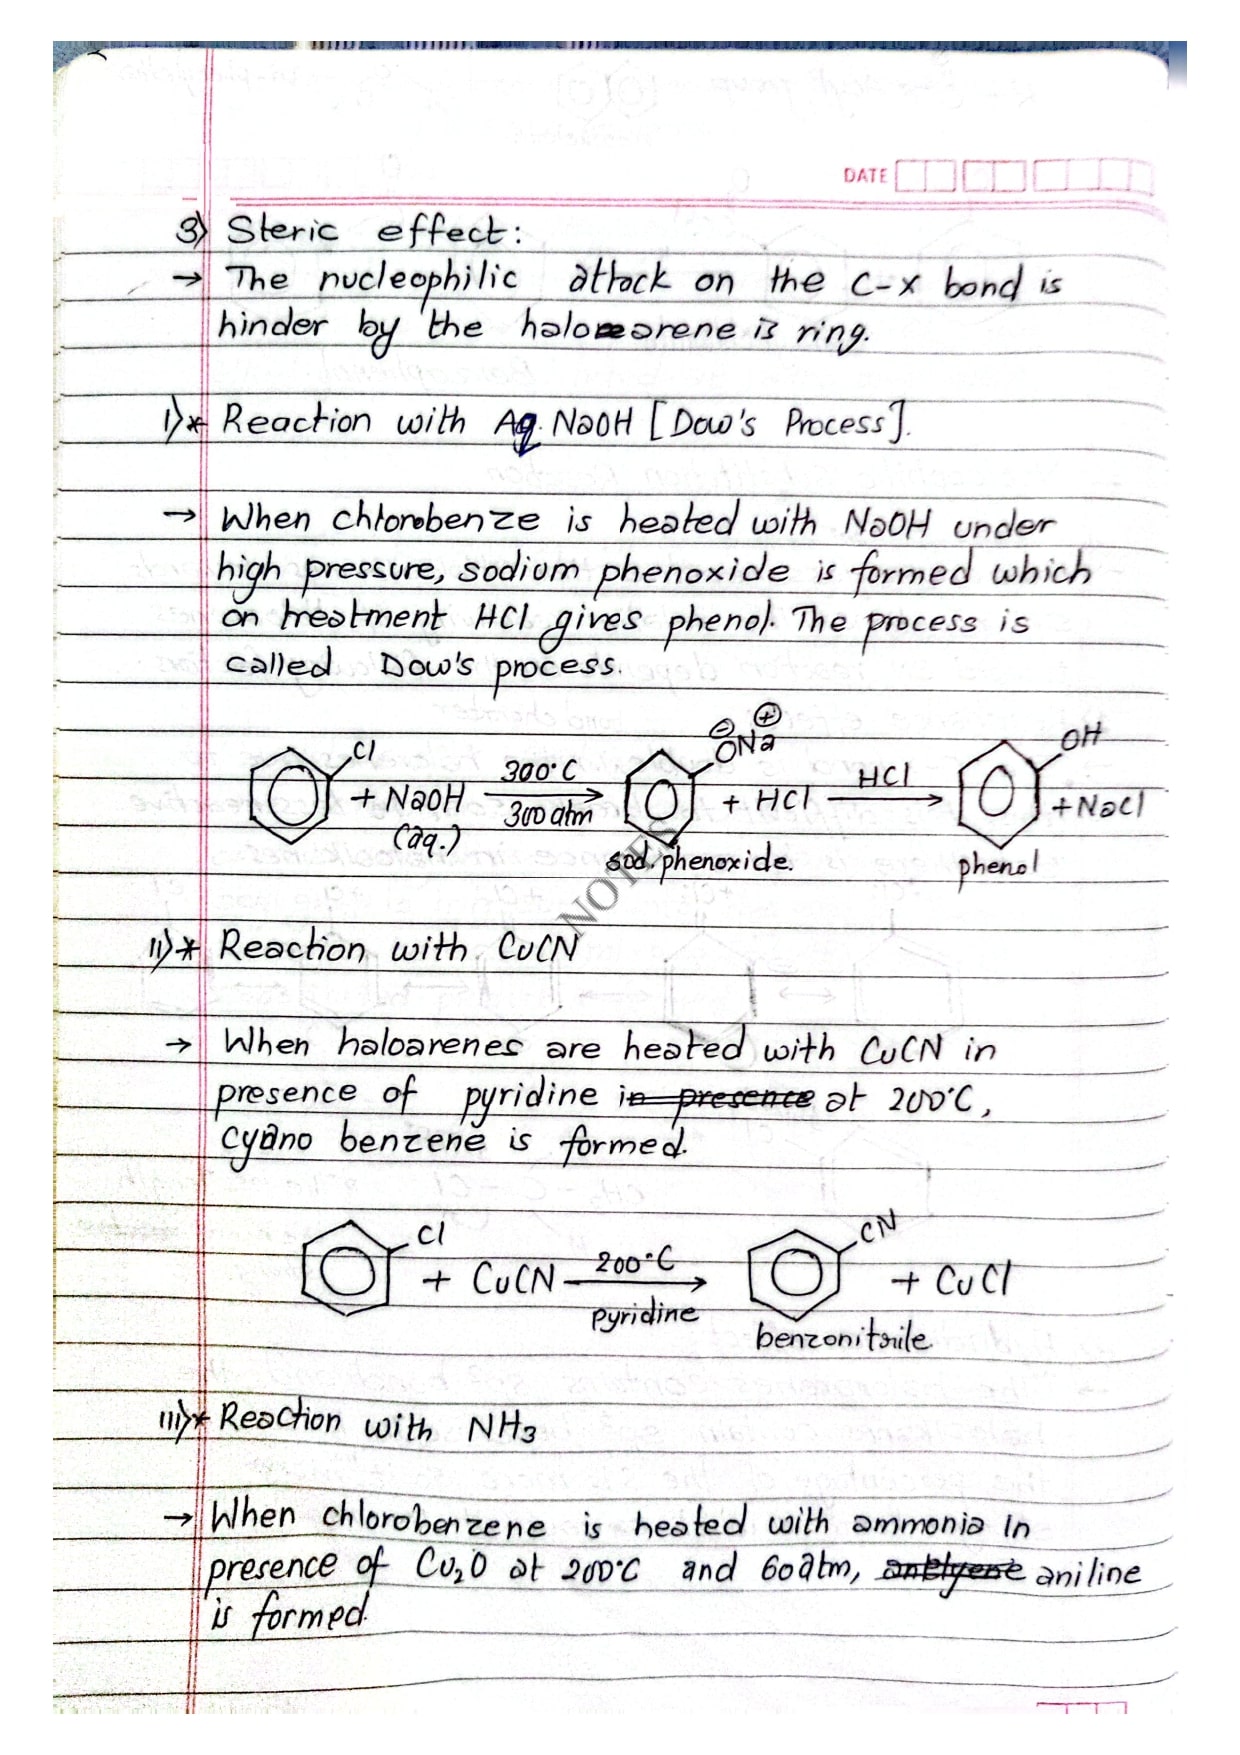 DATE
3) Steric effect:
→ The nucleophilic attack on the C-X bond is
hinder by the haloarene is ring.
i)* Reaction with Aq. NaOH [Dow's Process].
→ When chlorobenze is heated with NaOH under
high pressure, sodium phenoxide is formed which
on treatment HCl gives phenol. The process is
called Dow's process.
Cl + NaOH (aq.) 300°C 300 atm → ⊖ ⊕ ONa + HCl HCl → OH + NaCl
sod. phenoxide. phenol
NOTES
ii)* Reaction with CuCN
→ When haloarenes are heated with CuCN in
presence of pyridine in presence at 200°C,
cyano benzene is formed.
Cl + CuCN 200°C pyridine → CN + CuCl
benzonitrile.
iii)* Reaction with NH3
→ When chlorobenzene is heated with ammonia in
presence of Cu2O at 200°C and 60atm, aniline
is formed.